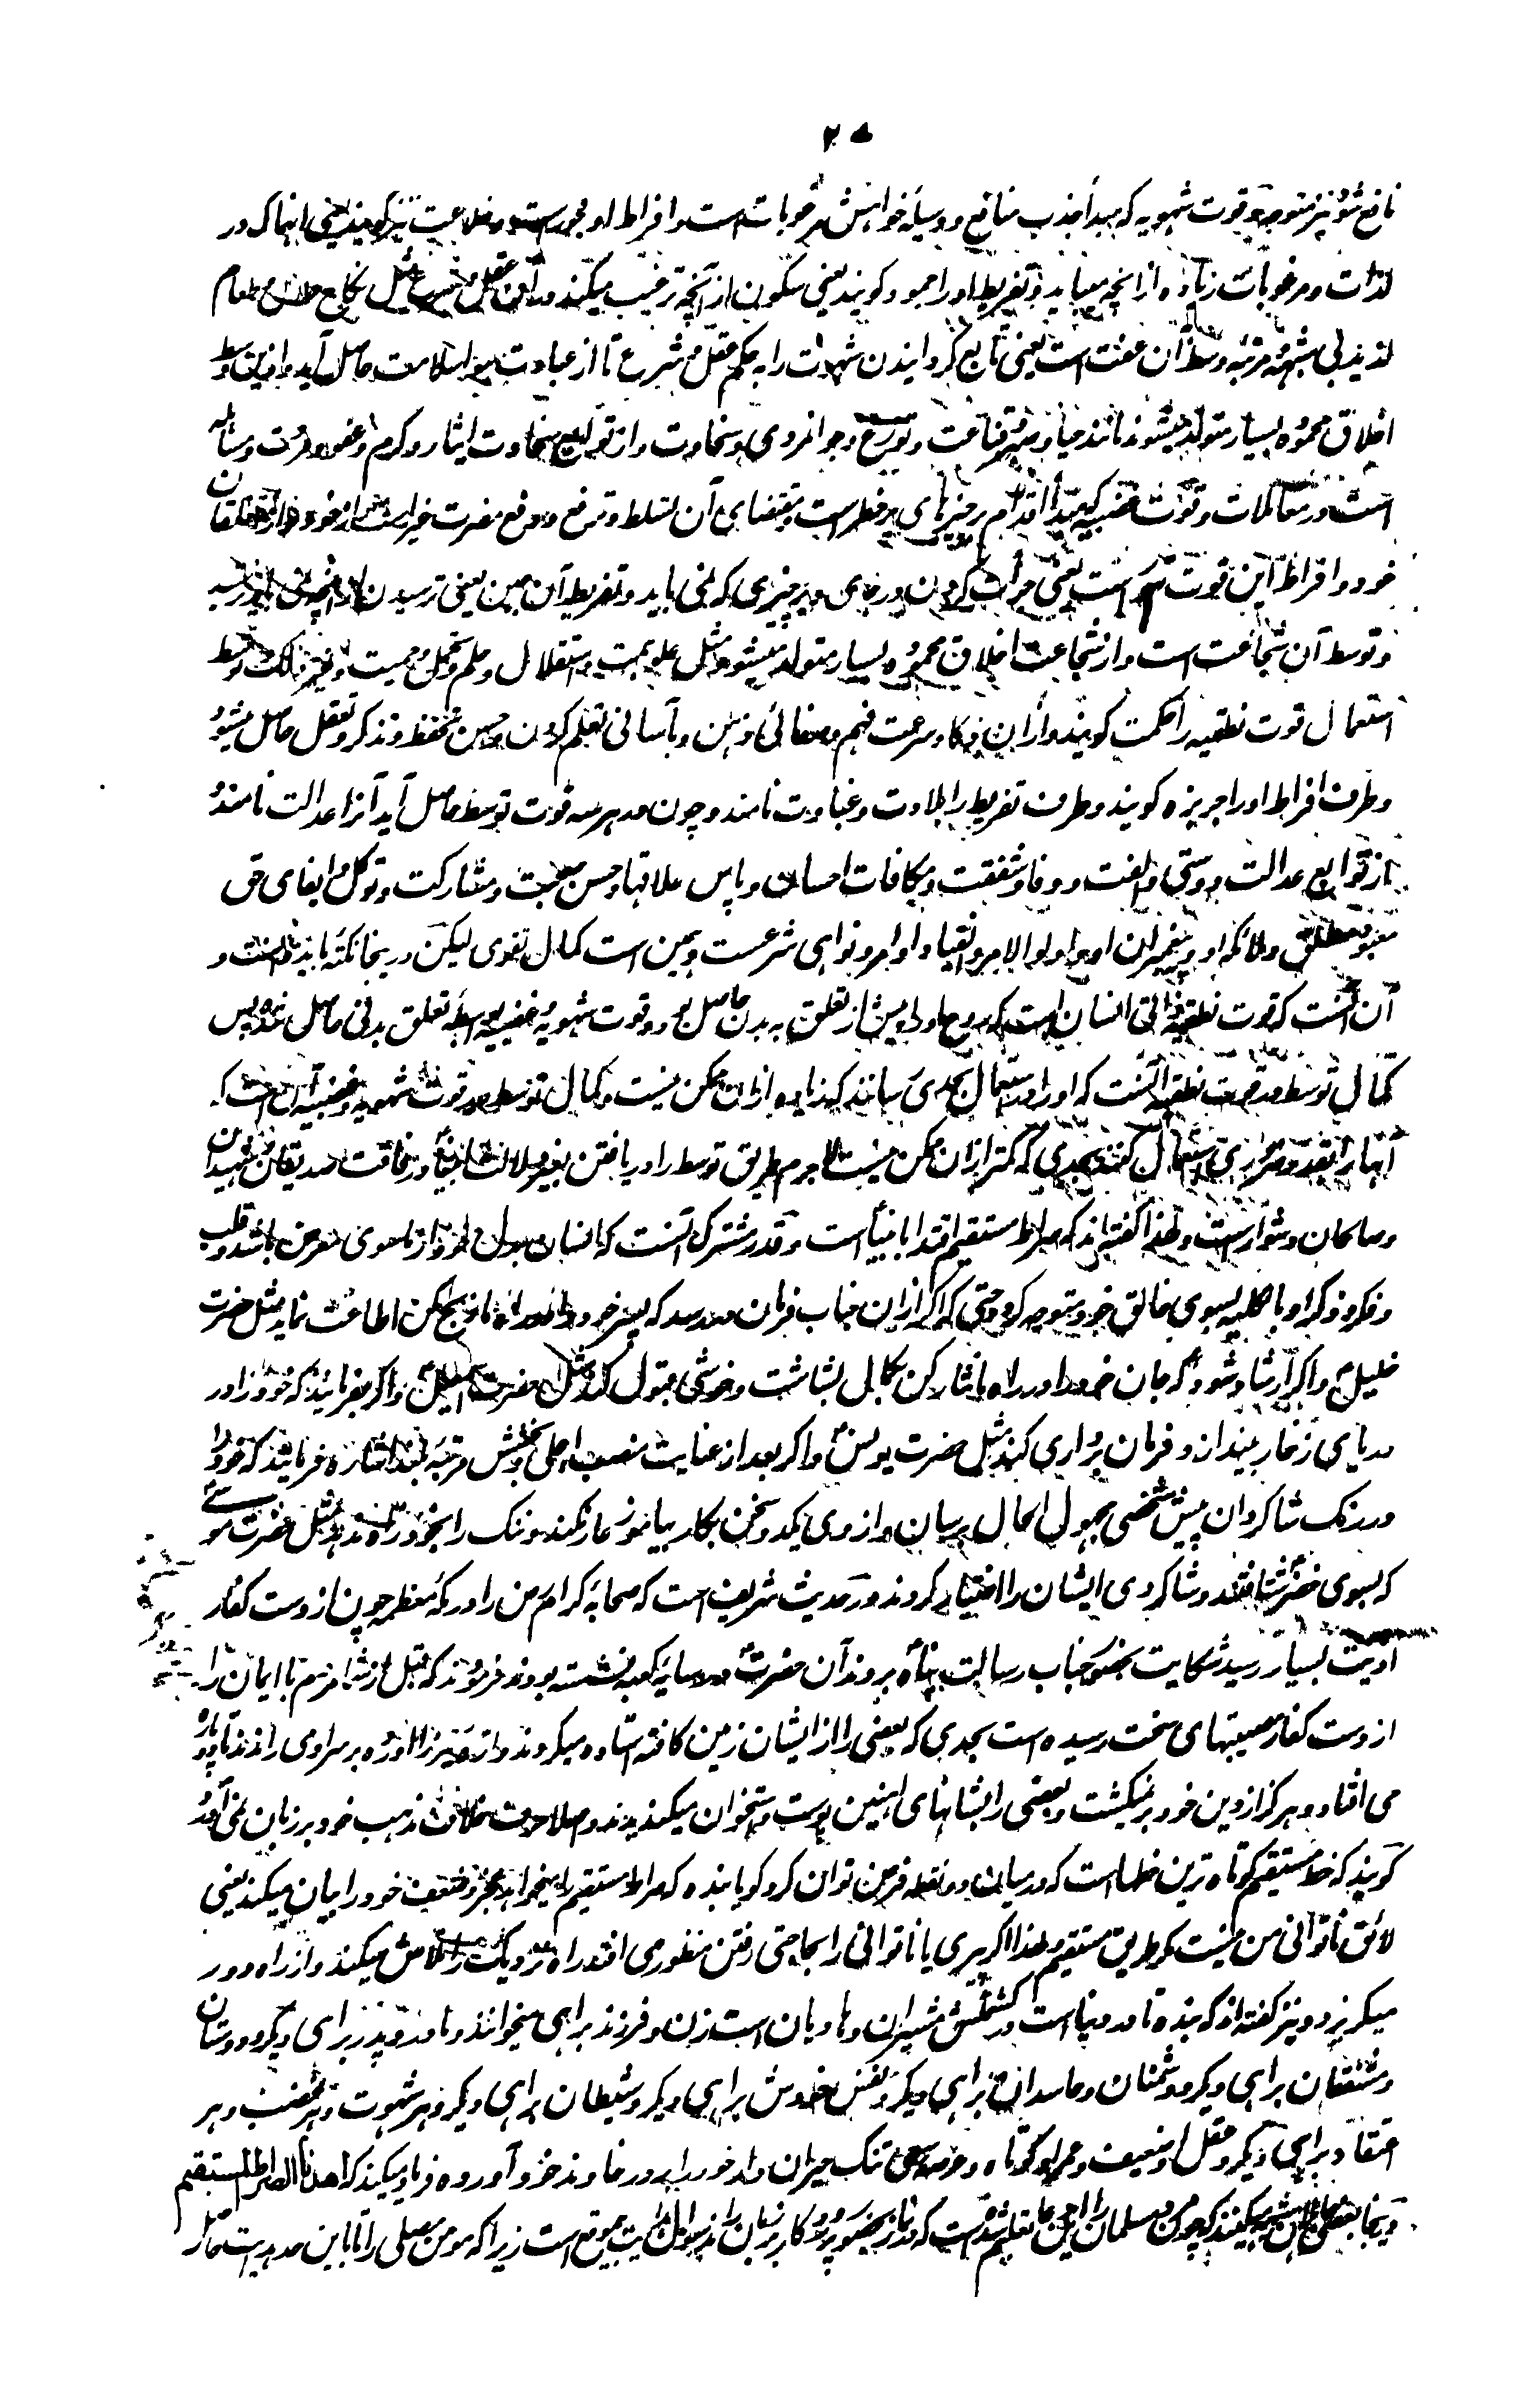 ۲۵
نافع شود نیز متوجه وقوت شهویه که مبدأ جذب منافع و وسیله خواهش مرغوبات است وافراط او فجورست و خلاعت نیز گویند یعنی انهماک در
لذات و مرغوبات زیاده از انچه میباید و تفریط اورا جمود گویند یعنی سکون از آنچه ترغیب میکند دران عقل و شرع مثل نکاح حلال و طعام
لذیذ بی شبهه و مرتبه وسط آن عفت است یعنی تابع گردانیدن شهوات را به حکم عقل و شرع تا از عبادت هوا سلامت حاصل آید و ازین وسط
اخلاق محموده بسیار متولد میشوند مانند حیا و صبر و قناعت و تورع و جوانمردی و سخاوت و از توابع سخاوت ایثار و کرم و عفو و مروت و مسامله
است در معاملات و قوت غضبیه که مبدأ اقدام بر چیزهای پرخطر است و مقتضای آن تسلط و ترفع و دفع مضرت خیر است از خود و از متعلقان
خود و افراط این قوت تهور است یعنی جرأت کردن در جای و بر چیزی که نمی باید و تفریط آن جبن یعنی ترسیدن از انچه نمی باید ترسید
و توسط آن شجاعت است و از شجاعت اخلاق محموده بسیار متولد میشود مثل علو همت و استقلال و حلم و تحمل و حمیت و غیر ذلک و توسط
استعمال قوت نطقیه را حکمت گویند و از ان ذکا و سرعت فهم و صفائی ذهن و بآسانی تعلم کردن و حسن تحفظ و تذکر و تعقل حاصل میشود
و طرف افراط اورا جربزه گویند و طرف تفریط را بلادت و غباوت نامند و چون در هر سه قوت توسط حاصل آید آنرا عدالت نامند و
از توابع عدالت دوستی و الفت و وفا و شفقت و مکافات احسان و پاس علاقها و حسن صحبت و مشارکت و توکل و ایفای حق
معبود مطلق و ملائکه او و پیغمبران او و اولوالامر و انقیاد اوامر و نواهی شرعست و همین است کمال تقوی لیکن درینجا نکته باید دانست و
آن آنست که قوت نطقیه ذاتی انسان است که روح اورا پیش از تعلق به بدن حاصل بود و قوت شهویه و غضبیه بواسطه تعلق بدنی حاصل شده پس
کمال توسط در قوت نطقیه آنست که اورا در استعمال بحدی رسانند که زیاده از ان ممکن نیست و کمال توسط در قوت شهویه و غضبیه آنست که
آنهارا بقدر ضروری استعمال کنند بحدی که کمتر از ان ممکن نیست لاجرم طریق توسط را دریافتن بغیر دلالت انبیا و رفاقت صدیقان و شهیدان
و صالحان دشوار است و لهذا گفته اند که صراط مستقیم اقتدا بانبیا است و قدر مشترک آنست که انسان بدل خود از ماسوی معرض باشد و قلب
و فکر و ذکر او بالکلیه بسوی خالق خود متوجه گردد حتی که اگر از ان جناب فرمان در رسد که پسر خود را در راه ما ذبح کن اطاعت نماید مثل حضرت
خلیل و اگر ارشاد شود که جان خود را در راه ما نثار کن بکمال بشاشت و خوشی قبول کند مثل حضرت اسمعیل و اگر بفرمایند که خود را در
دریای زخار بینداز و فرمان برداری کند مثل حضرت یونس و اگر بعد از عنایت منصب اعلی و بخشش مرتبه بلند اشاره فرمایند که خود را
در رنگ شاگردان پیش شخصی مجهول الحال برسان و از وی یکدو سخن بکار بیاموز عار نکند و ننگ را بخود راه ندهد مثل حضرت موسے
که بسوی خضر شتافتند و شاگردی ایشان را اختیار کردند و در حدیث شریف است که صحابه کرام من را در مکه معظمه چون از دست کفار
اذیت بسیار رسید شکایت بحضور جناب رسالت پناه بردند آن حضرت در سایه کعبه نشسته بودند فرمودند که قبل از شما مردم با ایمان را
از دست کفار مصیبتهای سخت رسیده است بحدی که بعضی را از ایشان زمین کافته استاده میکردند و از سر اره بر سر او می راندند تا دو پاره
می افتاد و هرگز از دین خود بر نمیگشت و بعضی را بشانهای آهنین پوست و استخوان میکندیدند و اصلا حرف خلاف مذهب خود بر زبان نمی آورد
گویند که خط مستقیم کوتاه ترین خطها است که درمیان دو نقطه فرض توان کرد گویا بنده که صراط مستقیم را میخواهد عجز و ضعف خود را بیان میکند یعنی
لائق ناتوانی من نیست مگر طریق مستقیم و لهذا اگر پیری یا ناتوانی را بجای رفتن منظور می افتد راه نزدیک را تلاش میکند و از راه دور
میگریزد و نیز گفته اند که بنده تا در دنیا است در کشمکش مشیران و هادیان است زن و فرزند براهی میخوانند و مادر و پدر براهی دیگر و دوستان
و مشفقان براهی دیگر و دشمنان و حاسدان براهی دیگر و نفس خودش براهی دیگر و شیطان براهی دیگر و هر شهوت و هر غضب و هر
اعتقاد براهی دیگر و عقل او ضعیف و عمر او کوتاه و عرصه سعی تنگ حیران و از خود رابدر خداوند خود آورده فریاد میکند که اهدنا الصراط المستقیم
و اینجا بعضی جاهلان شبه میکنند که چون مسلمان را این دعا تعلیم شده است که در نماز بحضور پروردگار بر زبان راند سوال هدایت بیموقع است زیرا که مومن مصلی را تا باین حد هدایت حاصل